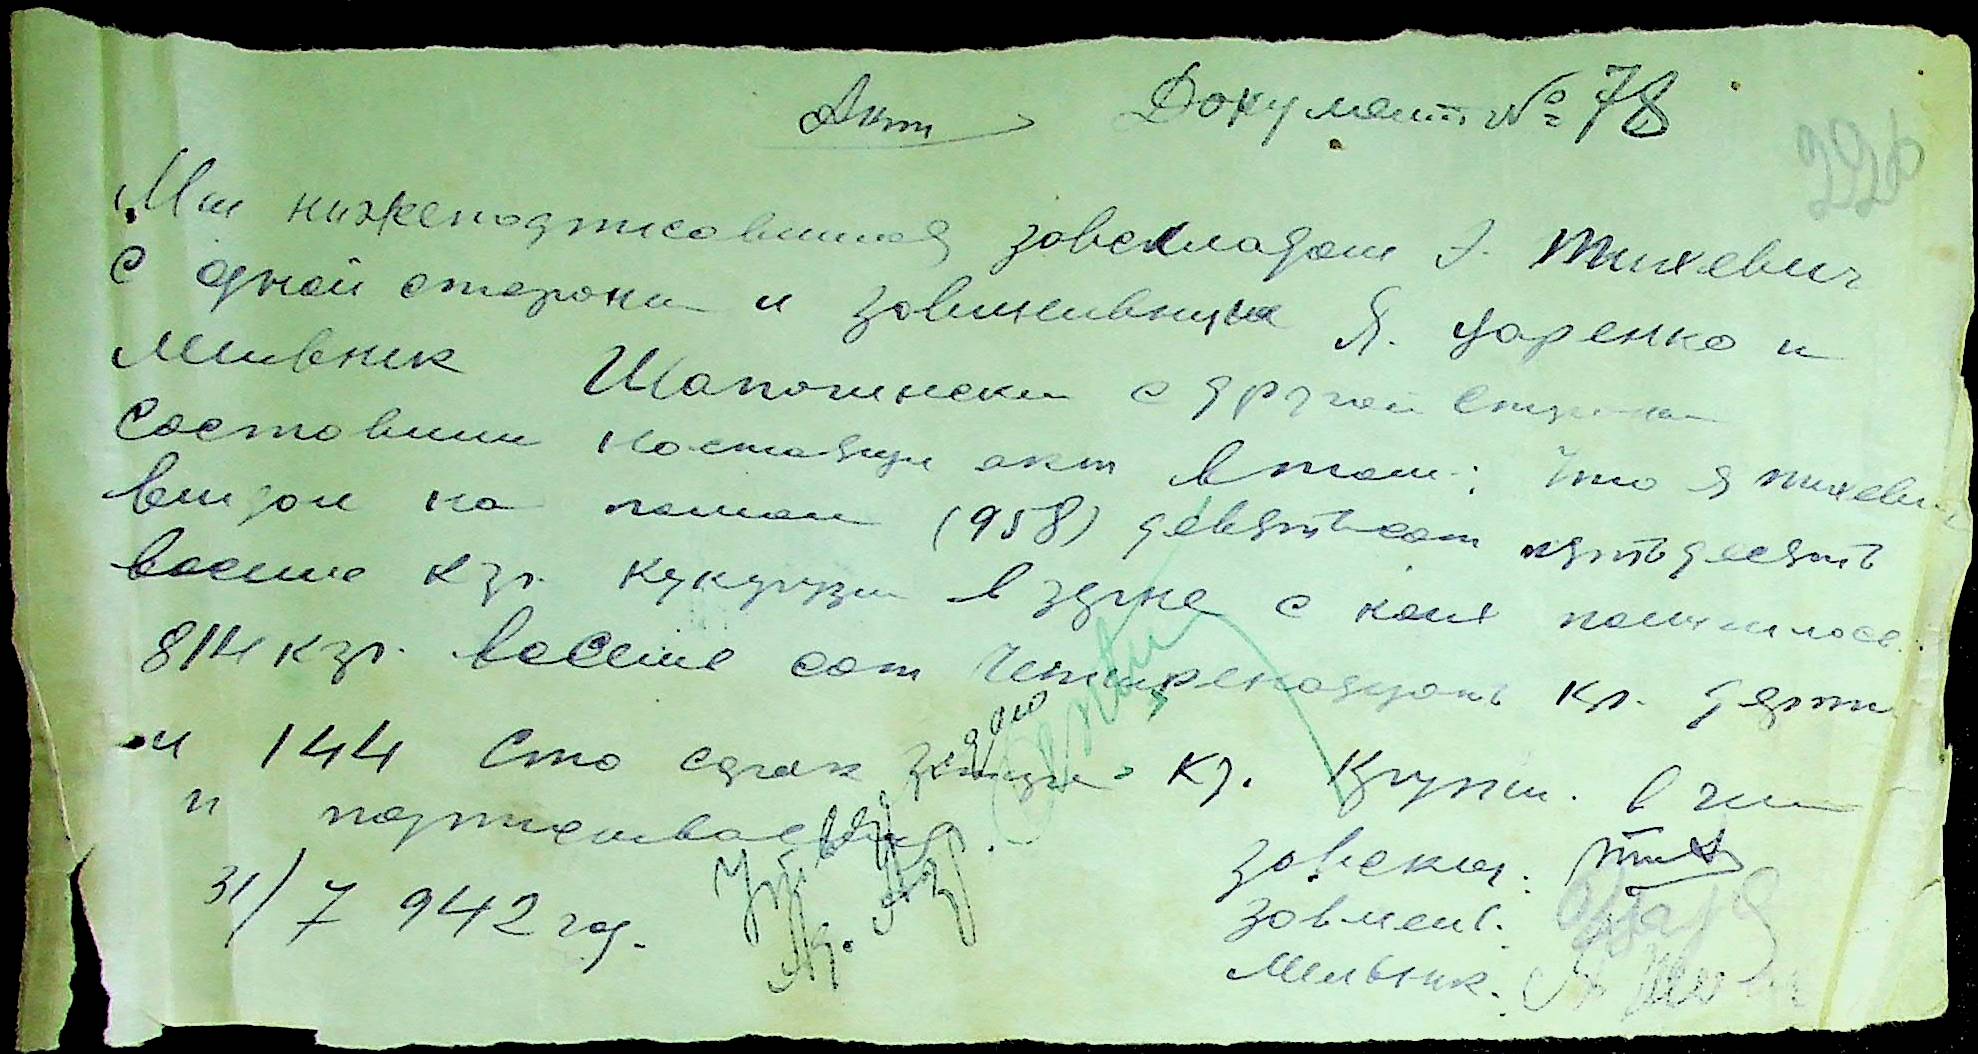 Акт Документ № 78
226
Мы нижеподписавшиеся завскладом Я. Тихевич
с одной стороны и завмельницы Я. Царенко и
мельник с другой стороны
составили настоящи акт в том: что я Тихевич
видал на помол (958) девятьсот пятьдесят
восемь кгр. кукурузы в зерне с коих получилось
814 кгр. восемь сот четыренадцать кг. дерти
и 144 сто сорок кг. крупы. в чем
и подписываемся.
31/7 942 год.
завскл:
завмель.
Мельник.